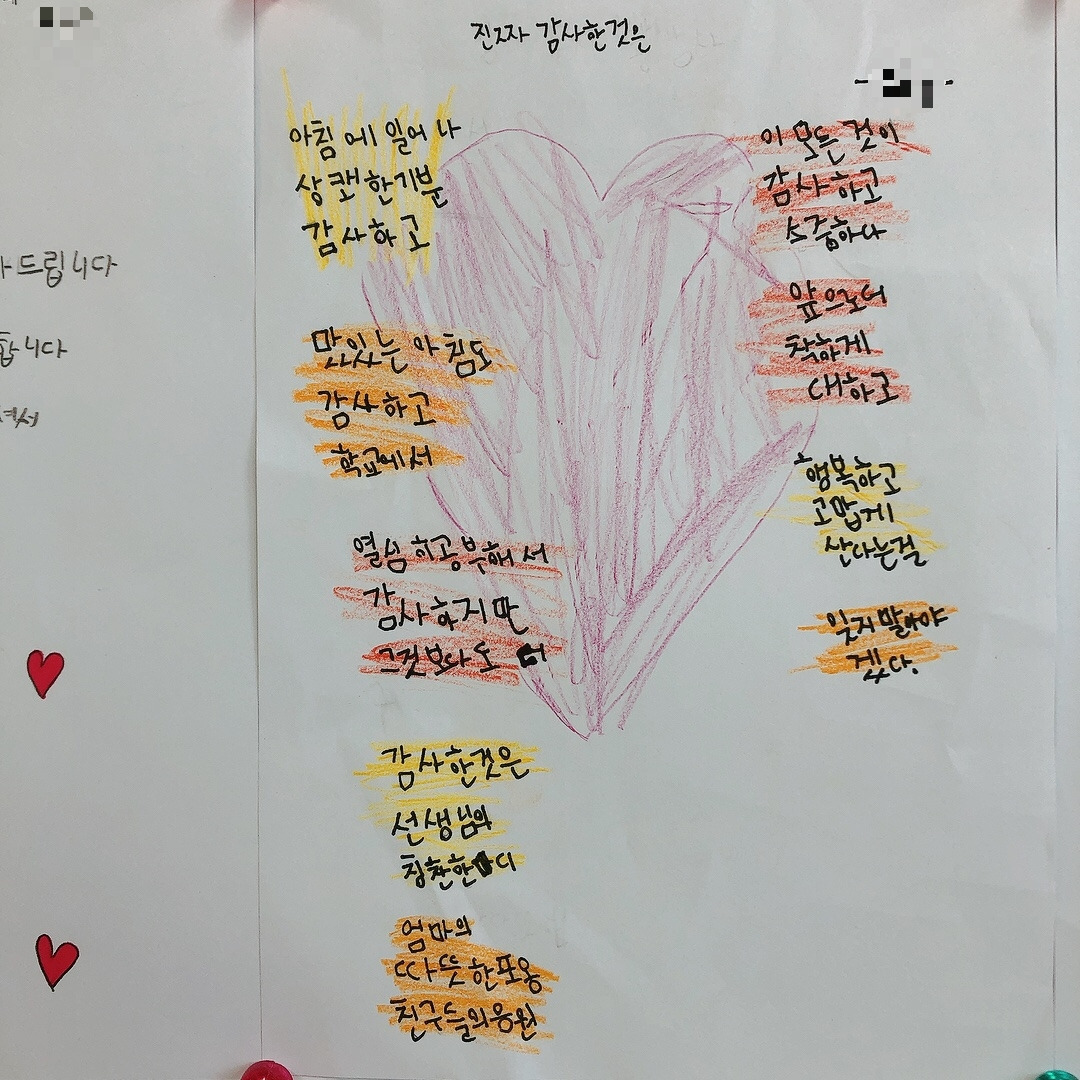 진짜 감사한것은
아침에 일어나
상쾌한기분
감사하고
맛있는 아침도
감사하고
학교에서
열심히공부해서
감사하지만
그것보다도 더
감사한것은
선생님의
칭찬한마디
엄마의
따뜻한포옹
친구들의응원
이 모든 것이
감사하고
소중하다
앞으로더
착하게
대하고
행복하고
고맙게
산다는걸
잊지말아야
겠다.
드립니다
합니다
셔서